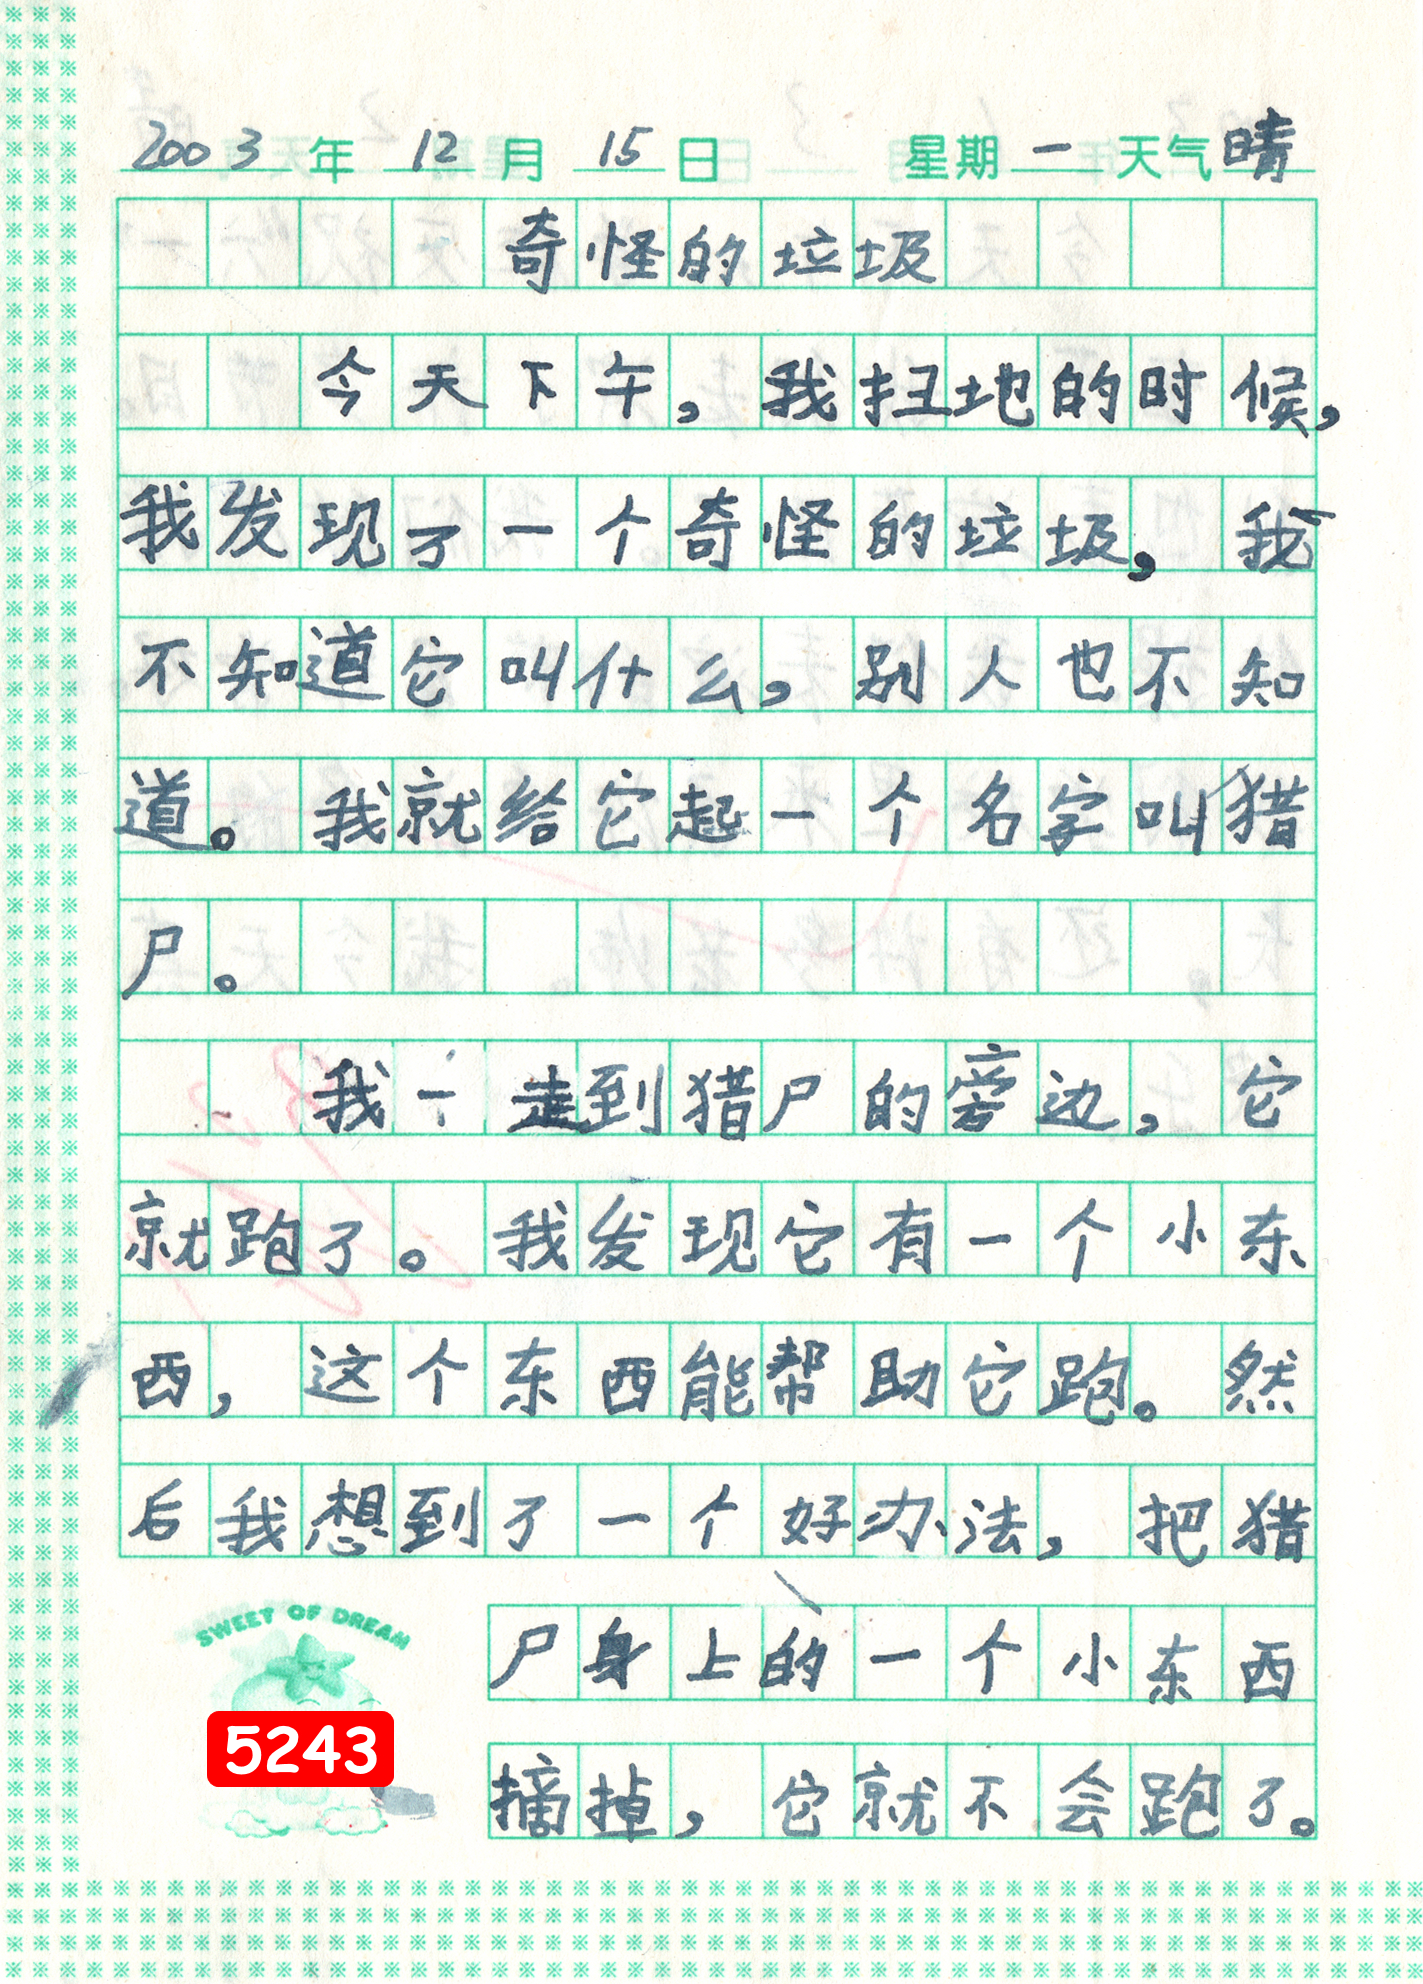 2003年 12月 15日 星期一 天气晴
奇怪的垃圾
今天下午，我扫地的时候，
我发现了一个奇怪的垃圾，我
不知道它叫什么，别人也不知
道。我就给它起一个名字叫猎
尸。
我一走到猎尸的旁边，它
就跑了。我发现它有一个小东
西，这个东西能帮助它跑。然
后我想到了一个好办法，把猎
尸身上的一个小东西
摘掉，它就不会跑了。
SWEET OF DREAM
5243